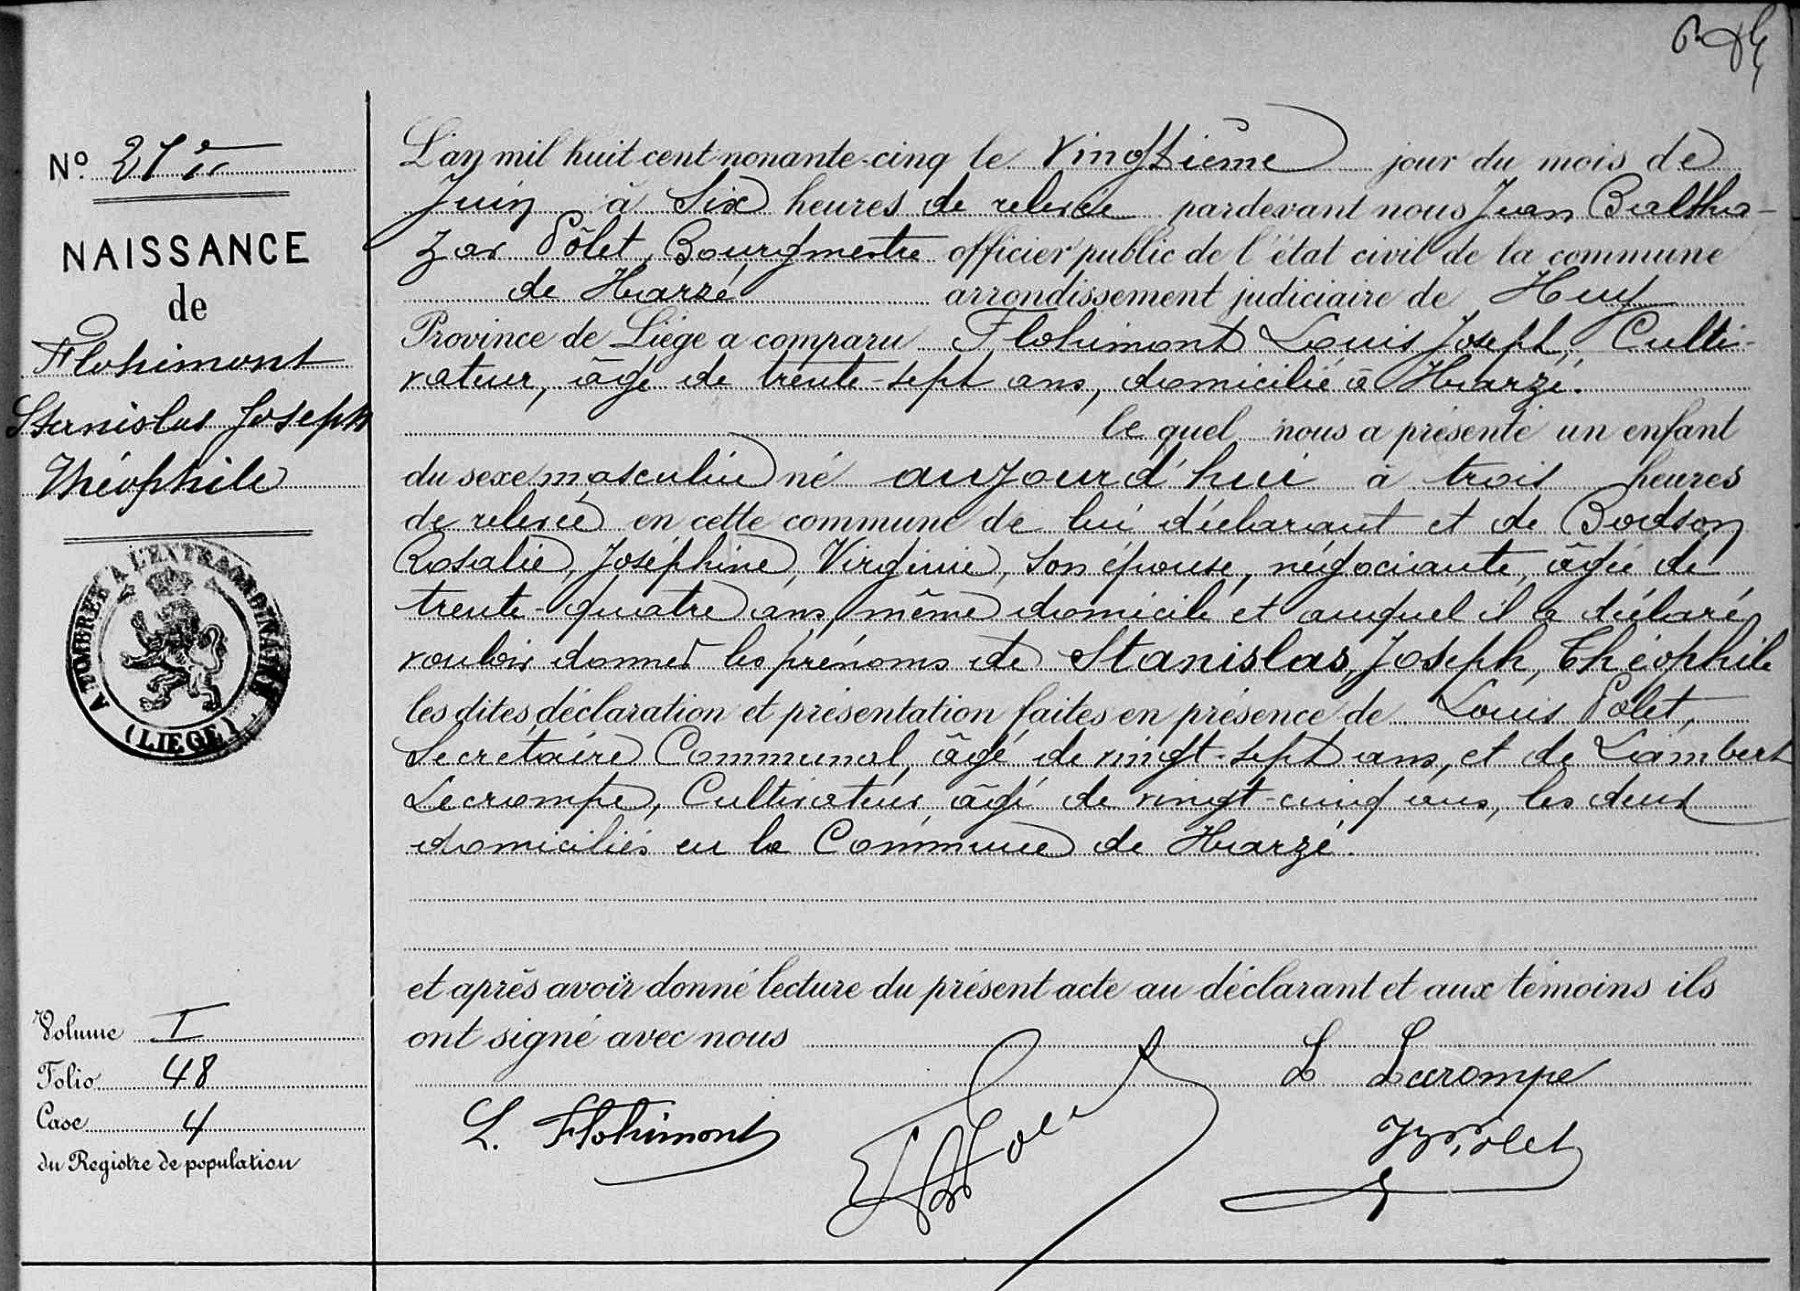 Nº 27
NAISSANCE
de
Flohimont
Stanislas Joseph
Théophile
A TIMBRER A L'EXTRAORDINAIRE
(LIEGE)
Volume I
Folio 48
Case 4
du Registre de population
L'an mil huit cent nonante-cinq le vingtième jour du mois de
Juin à six heures de relevée pardevant nous Jean Baltha-
zar Pôlet, Bourgmestre officier public de l'état civil de la commune
de Harzé arrondissement judiciaire de Huy
Province de Liége a comparu Flohimont Louis Joseph, Culti-
vateur, âgé de trente-sept ans, domicilié à Harzé.
lequel nous a présenté un enfant
du sexe masculin né aujourd'hui à trois heures
de relevée en cette commune de lui déclarant et de Bodson
Rosalie, Joséphine, Virginie, son épouse, négociante, âgée de
trente-quatre ans, même domicile et auquel il a déclaré
vouloir donner les prénoms de Stanislas, Joseph, Théophile
les dites déclaration et présentation faites en présence de Louis Polet,
Secrétaire Communal, âgé de vingt-sept ans, et de Lambert
Lecrompe, Cultivateur âgé de vingt-cinq ans, les deux
domiciliés en la Commune de Harzé.
et après avoir donné lecture du présent acte au déclarant et aux témoins ils
ont signé avec nous
L Lecrompe
L. Flohimont
JB Polet